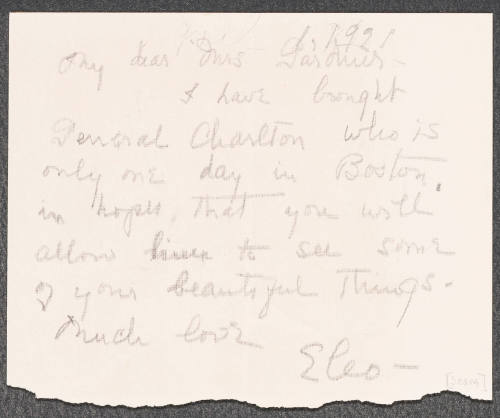 1921
My dear Mrs Gardner -
I have brought
General Charlton who is
only one day in Boston,
in hopes, that you will
allow him to see some
of your beautiful things.
Much love
Eleo -